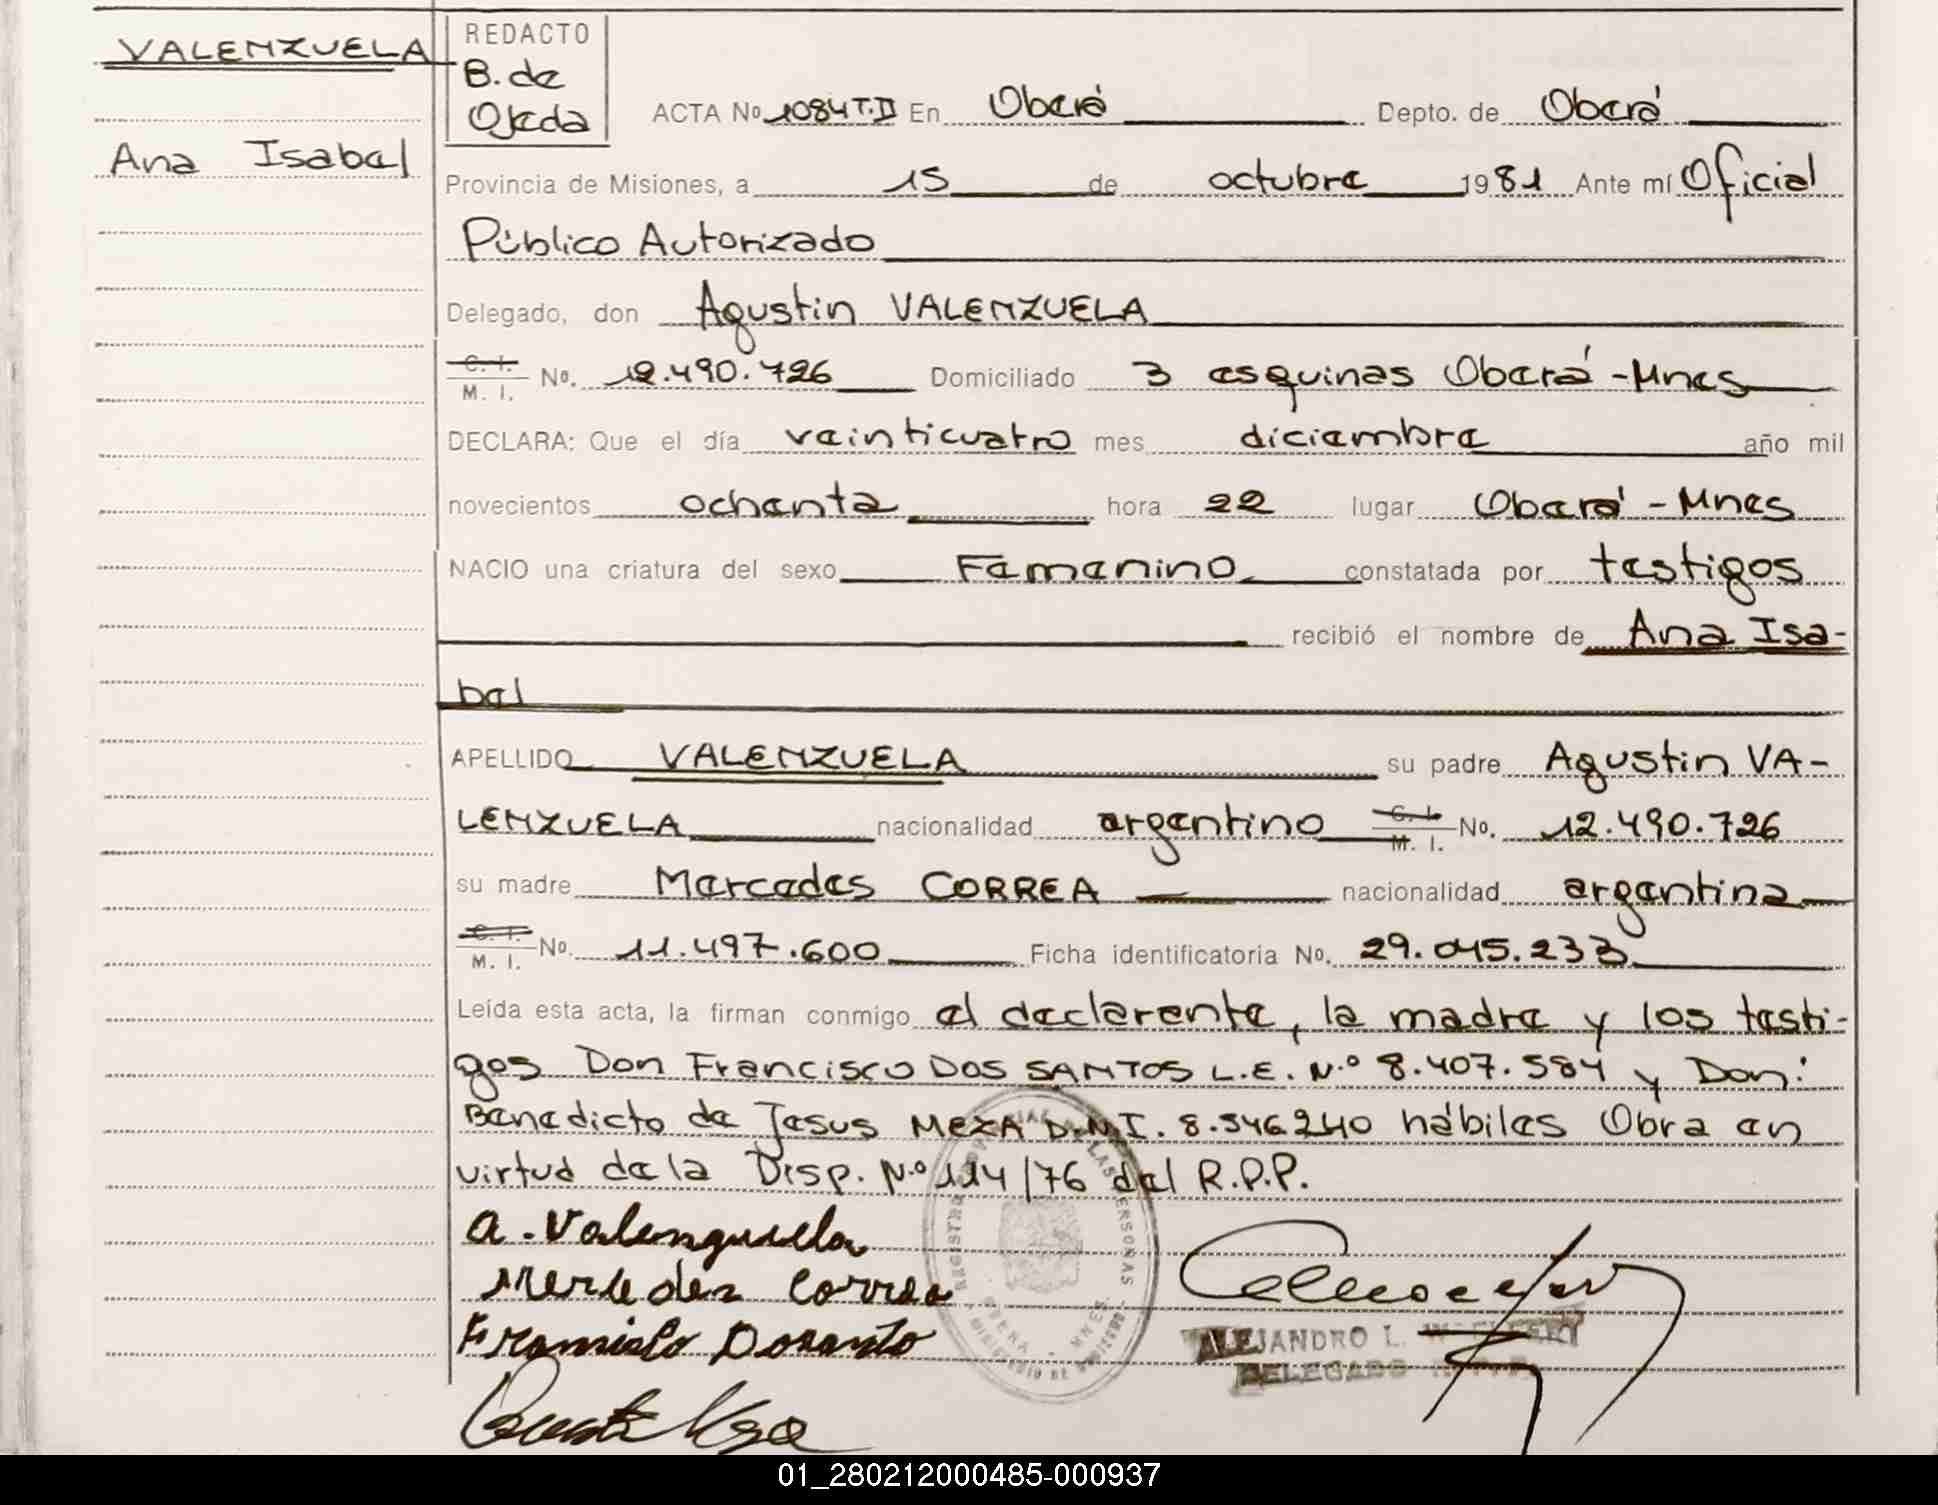 VALENZUELA
Ana Isabel
REDACTO
B. de
Ojeda
ACTA Nº 1084 T.II En Oberá Depto. de Oberá
Provincia de Misiones, a 15 de octubre 1981 Ante mí Oficial
Público Autorizado
Delegado, don Agustin VALENZUELA
C. I.
M. I. Nº. 12.490.726 Domiciliado 3 esquinas Oberá - Mnes
DECLARA: Que el día veinticuatro mes diciembre año mil
novecientos ochenta hora 22 lugar Oberá - Mnes
NACIO una criatura del sexo Femenino constatada por testigos
recibió el nombre de Ana Isa-
bel
APELLIDO VALENZUELA su padre Agustin VA-
LENZUELA nacionalidad argentino C. I. M. I. No. 12.490.726
su madre Mercedes CORREA nacionalidad argentina
C. I.
M. I. No. 11.497.600 Ficha identificatoria No. 29.045.233
Leída esta acta, la firman conmigo el declarente, la madre y los testi-
gos Don Francisco DOS SANTOS L.E. N.º 8.407.584 y Don:
Benedicto de Jesus MEZA D.N.I. 8.546240 hábiles Obra en
virtud de la Disp. N.º 114/76 del R.P.P.
A. Valenzuela
Mercedes Correa
ALEJANDRO L.
DELEGADO
01_280212000485-000937